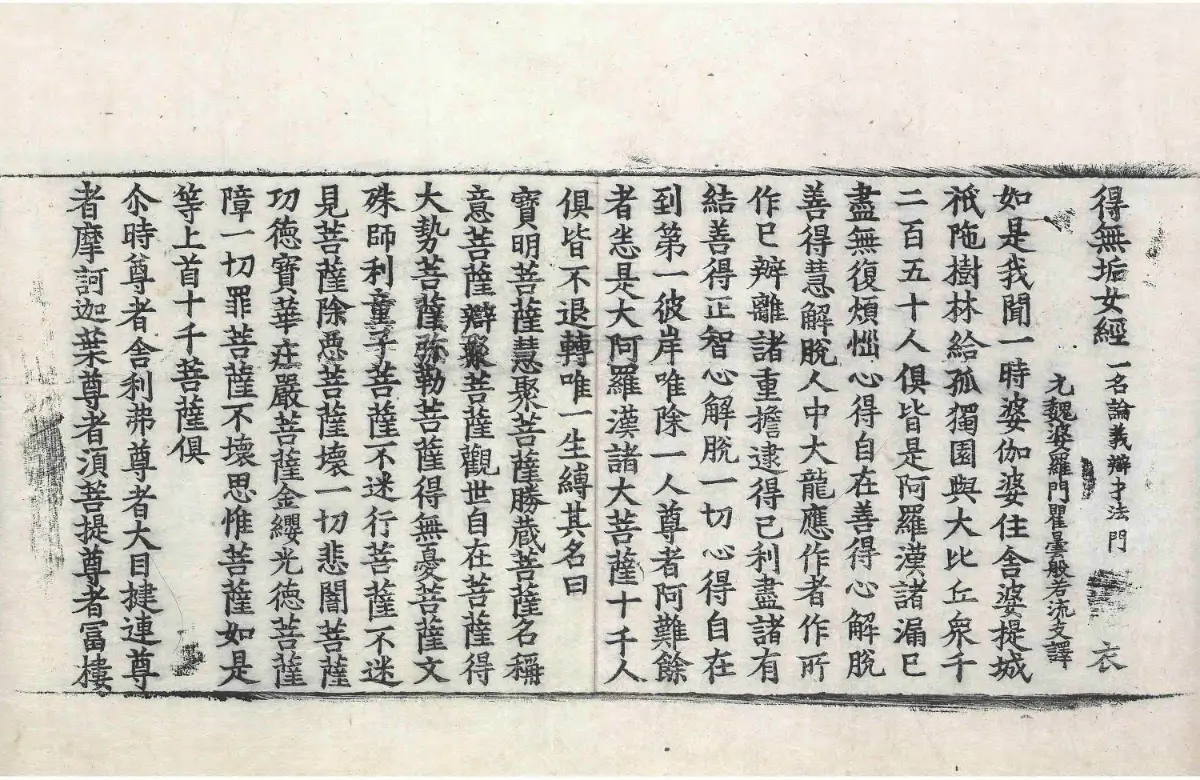 得無垢女經 一名論義辯才法門 衣
元魏婆羅門瞿曇般若流支譯
如是我聞一時婆伽婆住舍婆提城
祇陁樹林給孤獨園與大比丘衆千
二百五十人俱皆是阿羅漢諸漏已
盡無復煩惱心得自在善得心解脫
善得慧解脫人中大龍應作者作所
作已辦離諸重擔逮得已利盡諸有
結善得正智心解脫一切心得自在
到第一彼岸唯除一人尊者阿難餘
者悉是大阿羅漢諸大菩薩十千人
俱皆不退轉唯一生縛其名曰
寶明菩薩慧聚菩薩勝蔵菩薩名稱
意菩薩辯聚菩薩觀世自在菩薩得
大勢菩薩弥勒菩薩得無憂菩薩文
殊師利童子菩薩不迷行菩薩不迷
見菩薩除惡菩薩壞一切悲闇菩薩
功德寶華莊嚴菩薩金纓光德菩薩
障一切罪菩薩不壞思惟菩薩如是
等上首十千菩薩俱
尒時尊者舍利弗尊者大目揵連尊
者摩訶迦葉尊者湏菩提尊者富樓